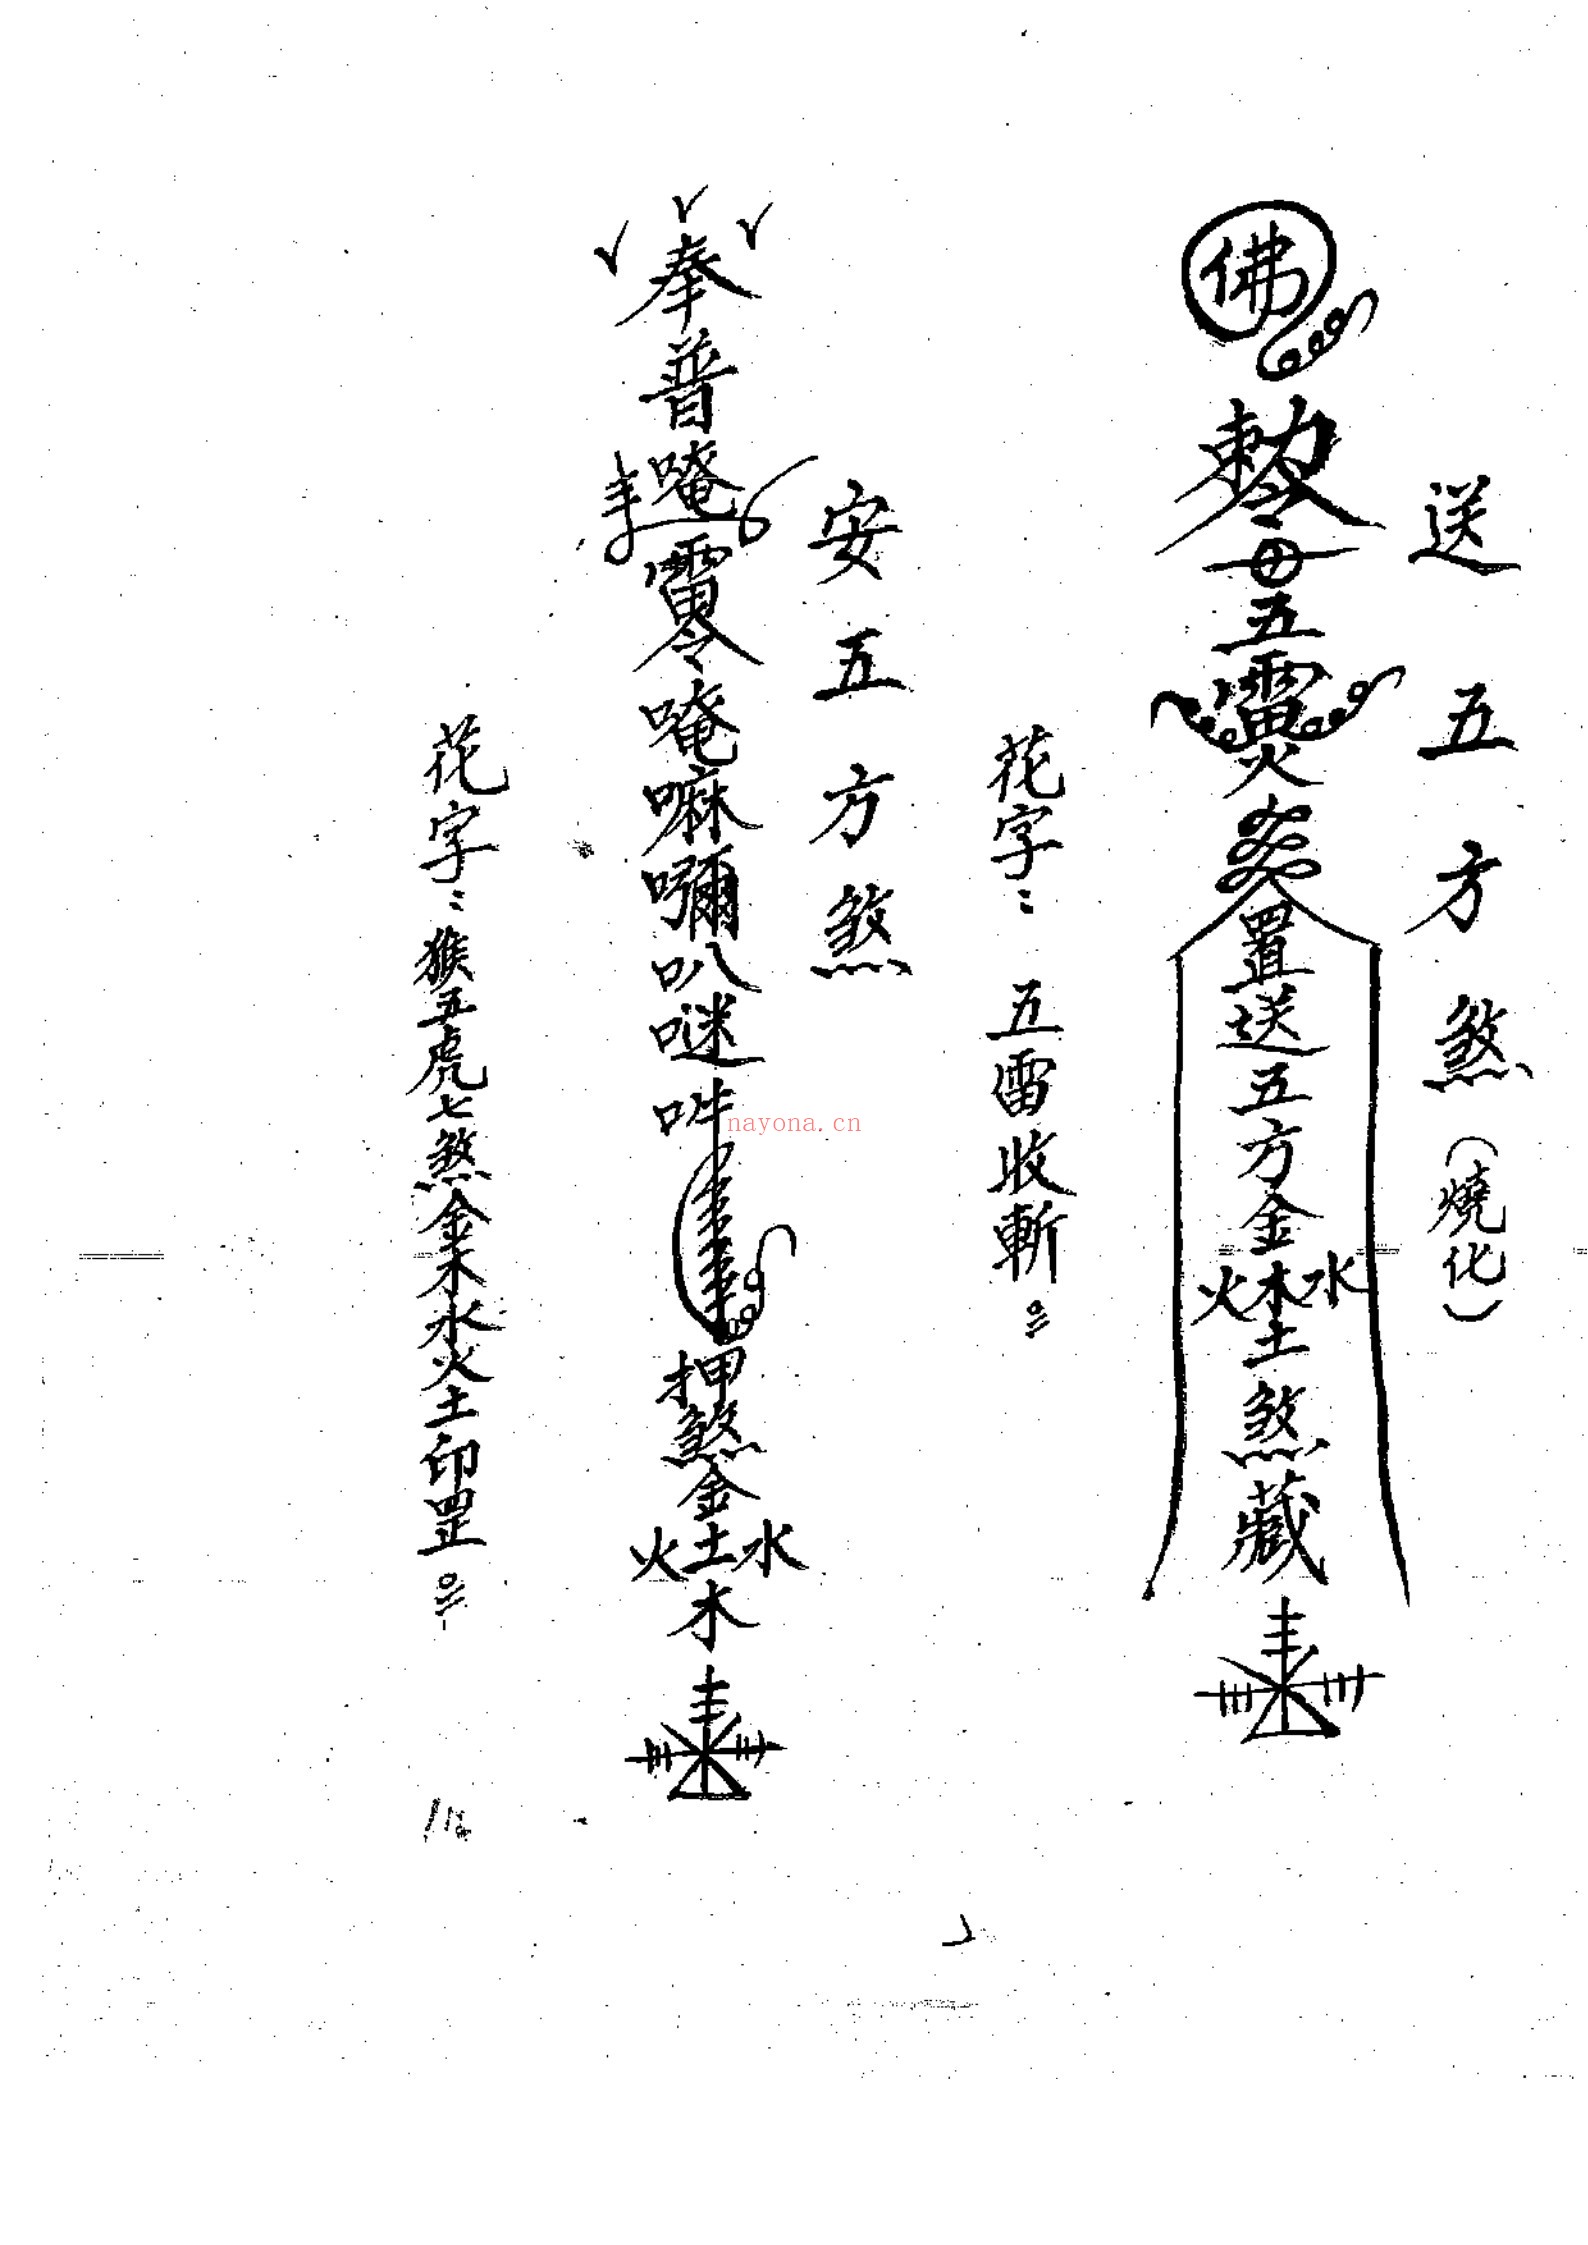 送五方煞（燒化）
佛
勅令
五雷火
置送五方金
火木水
土煞藏
花字：五雷收斬
安五方煞
奉普唵雷令唵嘛嚩叭㖷吽
押煞金
火土水
木
花字：猴五虎七煞金木水火土印罡
nayona.cn